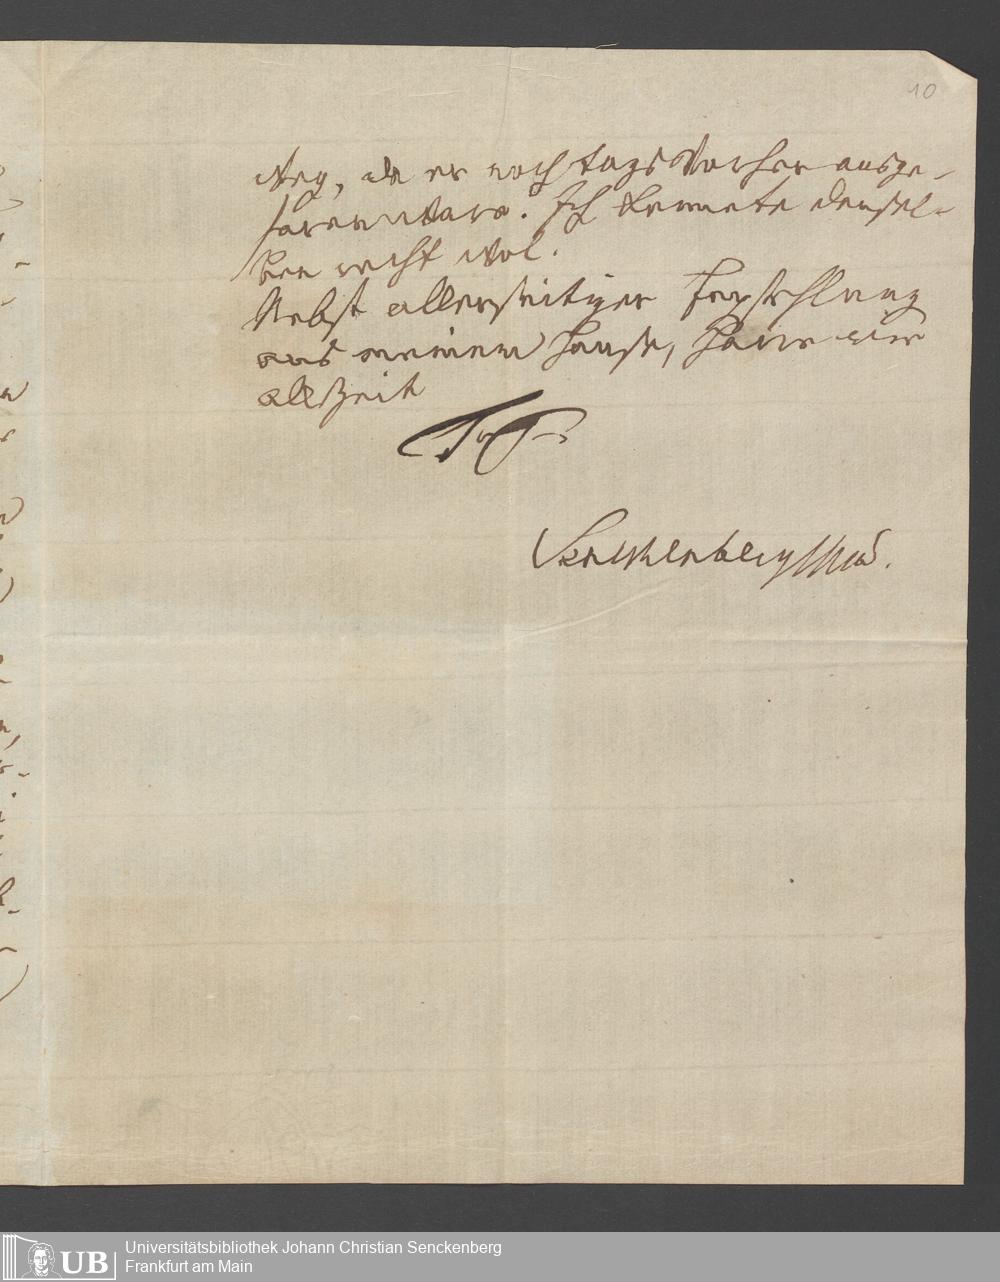 10
weg, da er noch tags vorher ausge-
faren ware. Ich kennete densel-
ben recht wol.
Nebst allerseitiger Empfehlung
aus meinem Hause, harre wie
allzeit
Senckenberg
Universitätsbibliothek Johann Christian Senckenberg
Frankfurt am Main
UB